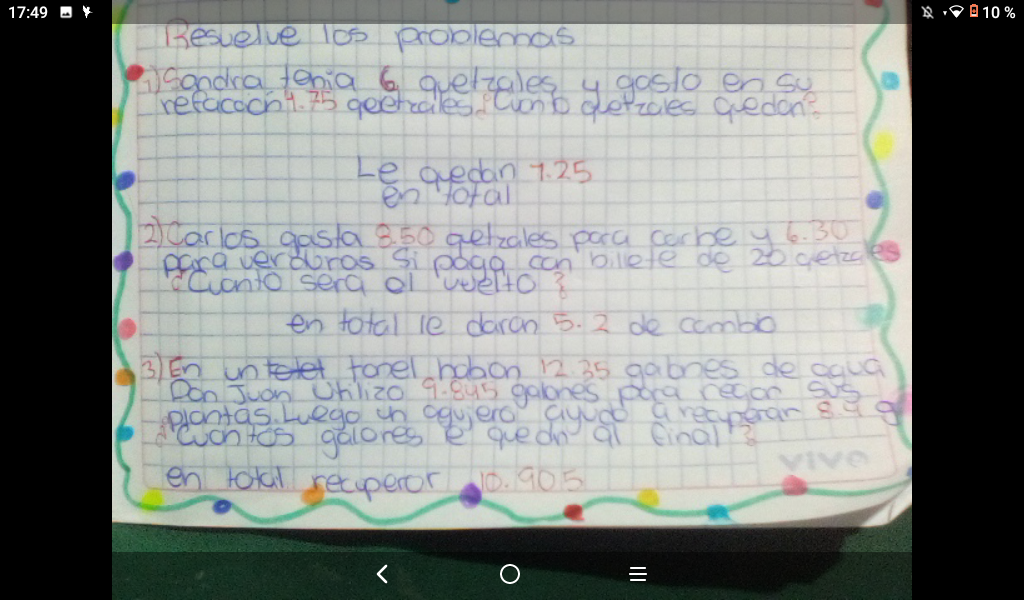 17:49
10 %
Resuelve los problemas
1) Sandra tenia 6 quetzales y gasto en su
refacción 4.75 qeetzales ¿Cuanto quetzales quedan?
Le quedan 1.25
en total
2) Carlos gasta 8.50 qetzales para carbe y 6.30
para verduras Si paga con billete de 20 qetzales
¿Cuanto sera el vuelto?
en total le daran 5.2 de cambio
3) En un tonel habon 12.35 galones de agua
Don Juan utilizo 9.845 galones para regar sus
plantas. Luego un agujero ayudo a recuperar 8.4 g
¿Cuantos galones le quedn al final?
en total recuperor 10.905
viva